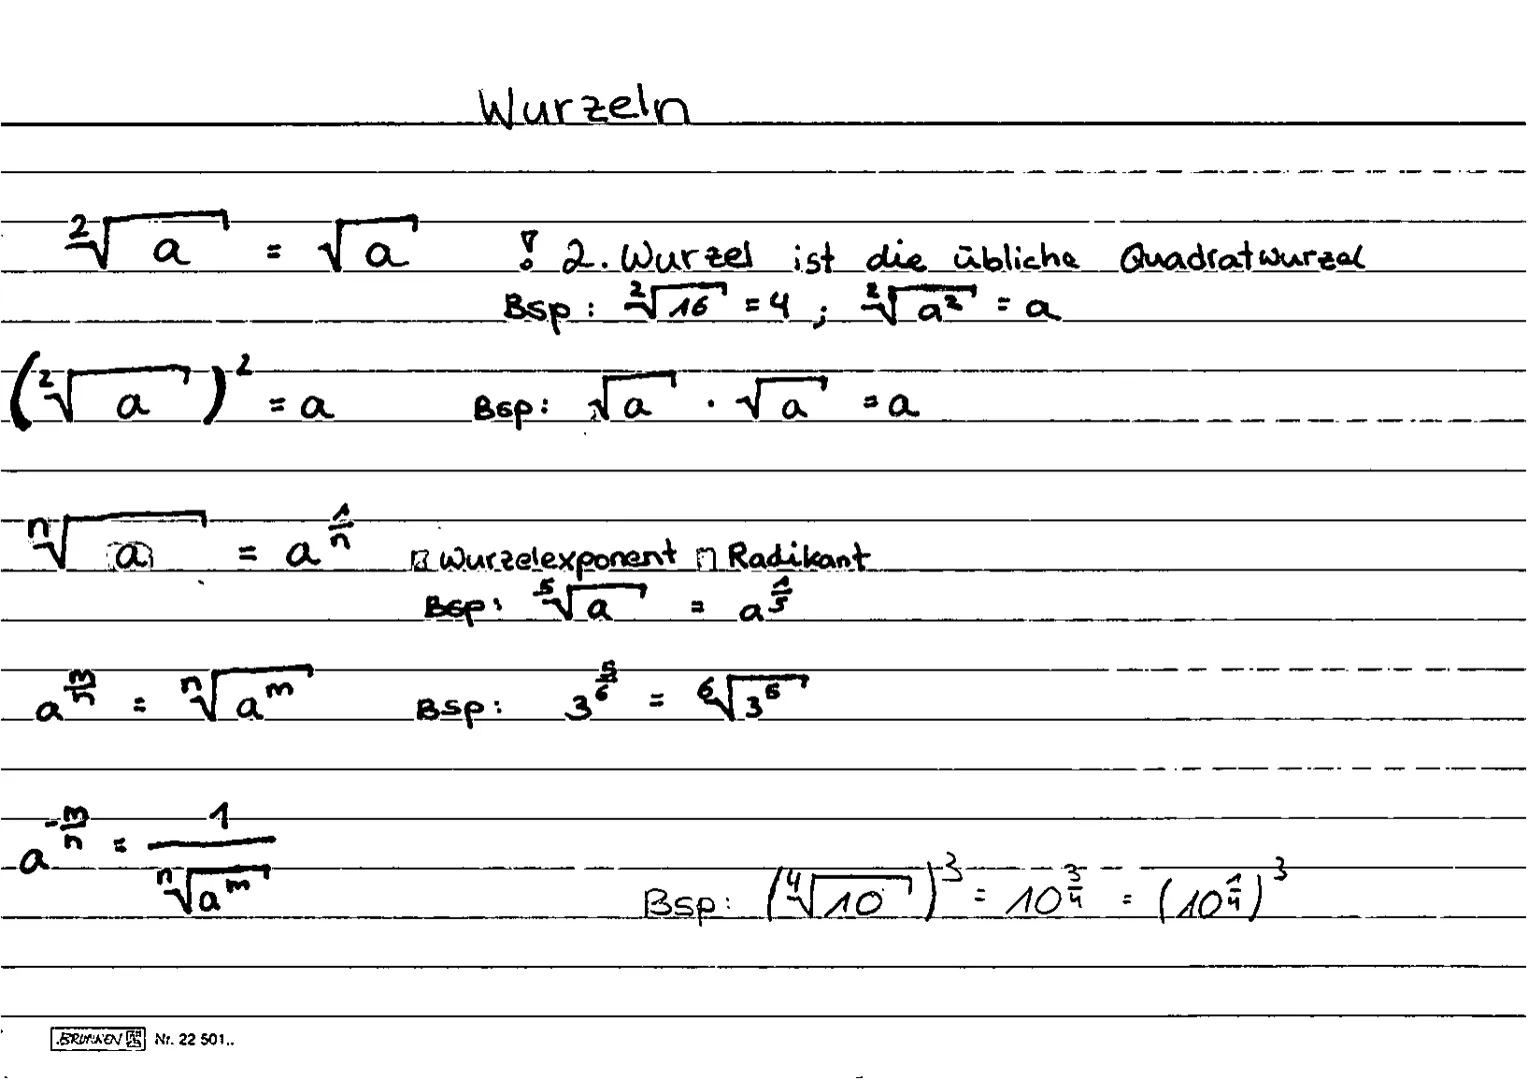 Wurzeln
²√a = √a ! 2. Wurzel ist die übliche Quadratwurzel
Bsp: ²√16 = 4 ; ²√a² = a
(²√a)² = a Bsp: √a · √a = a
ⁿ√a = a^(1/n) Wurzelexponent Radikant
Bsp: ⁵√a = a^(1/5)
a^(m/n) = ⁿ√a^m Bsp: 3^(5/6) = ⁶√3⁵
a^(-m/n) = 1/ⁿ√a^m
Bsp: (⁴√10)³ = 10^(3/4) = (10^(1/4))³
BRUNNEN Nr. 22 501..